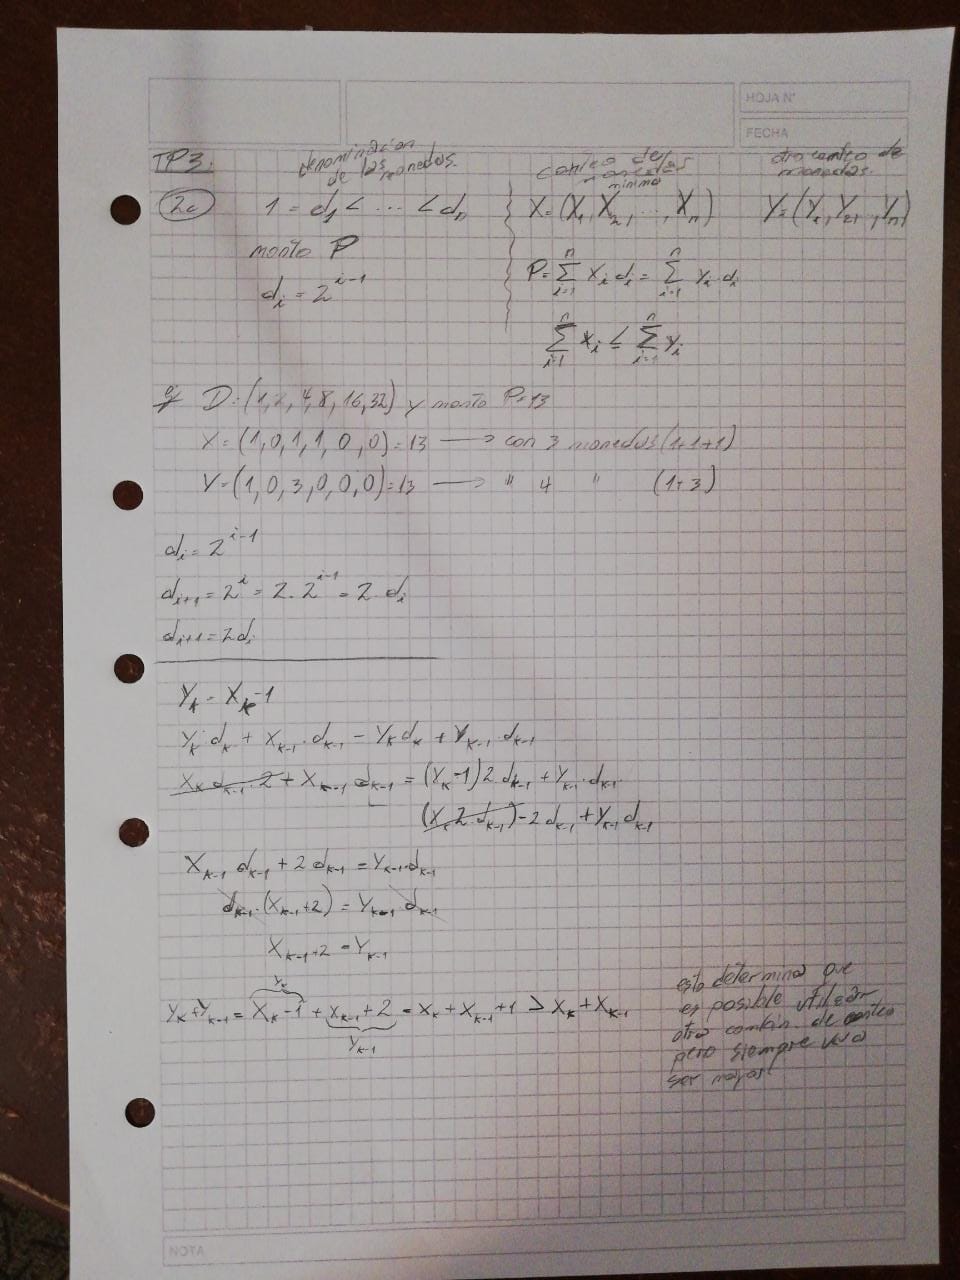 HOJA N°
FECHA
TP3.
denominacion de las monedas.
conteo de monedas minimo
otro conteo de monedas.
2c
1 = d₁ < ... < dₙ
X = (X₁, X₂, ..., Xₙ)
Y = (Y₁, Y₂, , Yₙ)
monto P
P = Σᵢ₌₁ⁿ xᵢ dᵢ = Σᵢ₌₁ⁿ yᵢ dᵢ
dᵢ = 2^(i-1)
Σᵢ₌₁ⁿ xᵢ ≤ Σᵢ₌₁ⁿ yᵢ
ej D = (1, 2, 4, 8, 16, 32) y monto P=13
X = (1, 0, 1, 1, 0, 0) = 13 → con 3 monedas (1+1+1)
Y = (1, 0, 3, 0, 0, 0) = 13 → " 4 " (1+3)
dᵢ = 2^(i-1)
dᵢ₊₁ = 2^i = 2 . 2^(i-1) = 2 dᵢ
dᵢ₊₁ = 2dᵢ
Yₖ = Xₖ - 1
Yₖ dₖ + Xₖ₋₁ . dₖ₋₁ = Yₖ dₖ + Yₖ₋₁ dₖ₋₁
Xₖ dₖ₋₁ . 2 + Xₖ₋₁ dₖ₋₁ = (Yₖ-1) 2 dₖ₋₁ + Yₖ₋₁ . dₖ₋₁
(Xₖ 2 dₖ₋₁) - 2 dₖ₋₁ + Yₖ₋₁ dₖ₋₁
Xₖ₋₁ dₖ₋₁ + 2 dₖ₋₁ = Yₖ₋₁ . dₖ₋₁
dₖ₋₁ . (Xₖ₋₁ + 2) = Yₖ₋₁ dₖ₋₁
Xₖ₋₁ + 2 = Yₖ₋₁
Yₖ
Yₖ + Yₖ₋₁ = Xₖ - 1 + Xₖ₋₁ + 2 = Xₖ + Xₖ₋₁ + 1 > Xₖ + Xₖ₋₁
Yₖ₋₁
esto determina que
es posible utilizar
otra combin. de conteo
pero siempre va a
ser mayor
NOTA